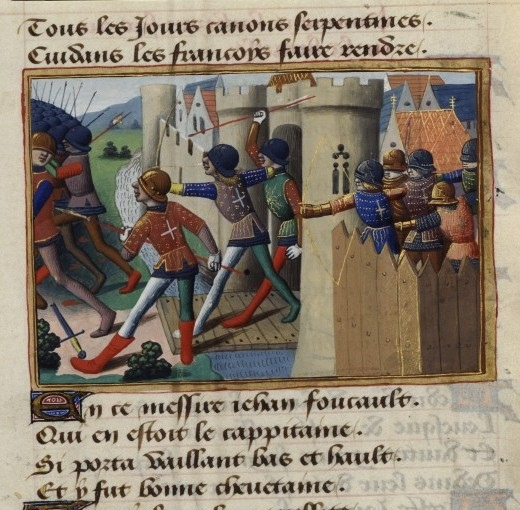 Tous les Jours canons serpentines.
Cuidans les francoys faire rendre.
En ce messire iehan foucault.
Qui en estoit le cappitaine.
Si porta vaillant bas et hault.
Et y fut bonne chevetaine.